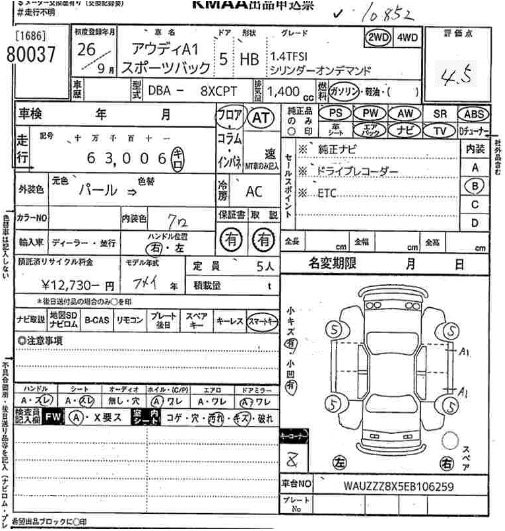 ※メーター交換歴有り (交換記録要)
#走行不明
KMAA出品申込票
10852
[1686]
80037
初度登録年月
26/9月
車名
アウディA1
スポーツバック
ドア
5
形状
HB
グレード
1.4TFSI
シリンダーオンデマンド
2WD 4WD
評価点
4.5
車歴
型式
DBA - 8XCPT
排気量
1,400 cc
燃料
ガソリン・軽油・( )
車検 年 月
フロア・コラム・インパネ
AT
速
MT車のみ記入
走行
記号 十万 千 百 十 一
63,006
キロ
純正品のみ○印
PS PW AW SR ABS
革シート エアバック ナビ TV Dチューナー
社外品含む
セールスポイント
※ 純正ナビ
※ ドライブレコーダー
※ ETC
内装
A
B
C
D
外装色
元色 パール ⇒ 色替
冷房
AC
カラーNO
内装色
クロ
保証書 取説
有 有
輸入車
ディーラー・並行
ハンドル位置
右・左
全長 cm 全幅 cm 全高 cm
預託済リサイクル料金
¥12,730-円
モデル年式
年
定員 5人
積載量 t
名変期限 月 日
*後日送付品の場合のみ○を印
ナビ取説 地図SDナビロム B-CAS リモコン プレート後日 スペアキー キーレス スマートキー
◎注意事項
小キズ 有
小凹 有
5 5
5 5
A1
A1
ハンドル シート オーディオ ホイル・(C/P) エアロ ドアミラー
A・スレ A・スレ 無し・穴 A・ワレ A・ワレ A・ワレ
検査員記入欄
FW
A・X要ス
室内シート
コゲ・穴・汚れ・キズ・破れ
キーコーナー
左 右
スペア
車台NO
WAUZZZ8X5EB106259
プレートNo
色目車は記入しない
希望出品ブロックに○印